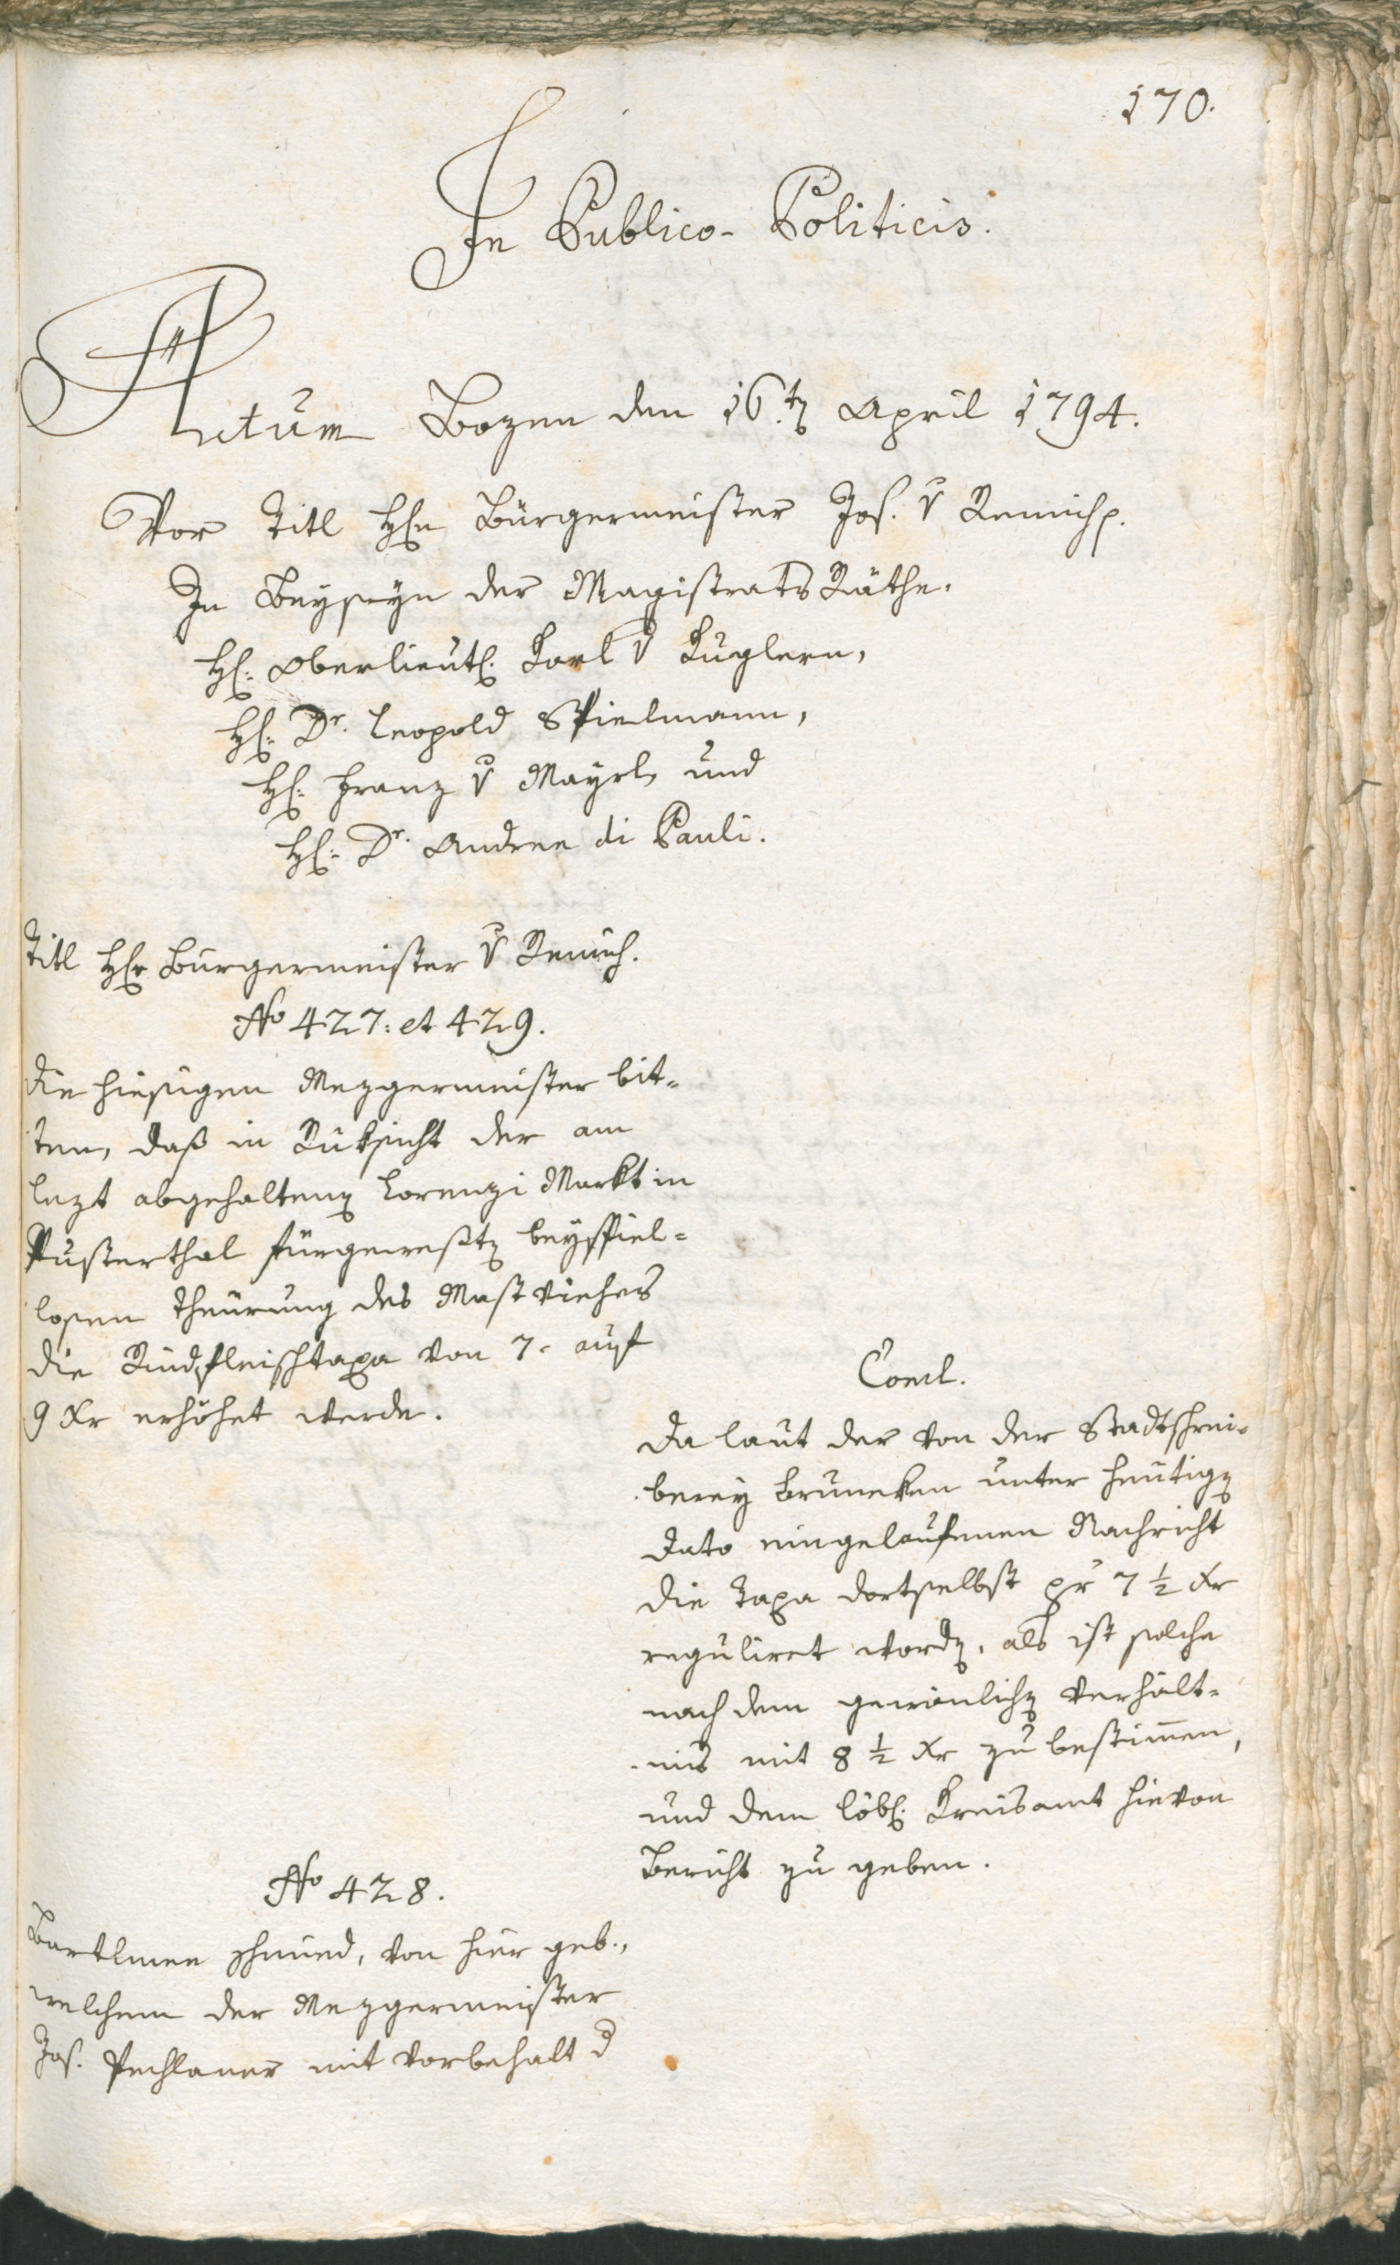 170.
In Publico-Politicis.
Actum Bozen den 16.ten April 1794.
Vor Titl Hhn Bürgermeister Jos. v Remich p.
In Beyseyn der Magistrats Räthe.
H: Oberlieut: Karl v Kuglern,
H: Dr. Leopold Spielmann,
H: Franz v Mayrl, und
H: Dr. Andree di Pauli.
Titl Hhr Burgermeister v Remich.
No 427: et 429.
Die hiesigen Mezgermeister bit-
ten, daß in Rüksicht der am
lezt abgehaltenen Lorenzi Markt in
Pusterthal fürgewesten beyspiel-
losen Theürung des Mastviehes
die Rindfleischtaxa von 7. auf
9 Xr erhöhet werde.
Concl.
Da laut der von der Stadtschrei-
berey Bruneken unter heutigen
Dato eingelaufenen Nachricht
die Taxa dortselbst pr 7 1/2 Xr
reguliret worden, als ist solche
nach dem gewönlichen Verhält-
nis mit 8 1/2 Xr zu bestimmen,
und dem löbl. Kreisamt hievon
Bericht zu geben.
No 428.
Bartlmee Schmied, von hier geb.,
welchem der Mezgermeister
Jos. Pechlaner mit Vorbehalt d